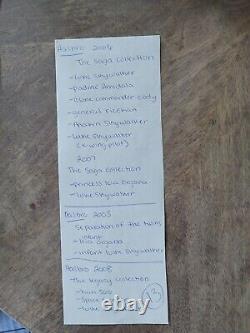 Hasbro 2006
The Saga Collection
-Luke Skywalker
-Padme Amidala
-Clone commander Cody
-General Rieekan
-Anakin Skywalker
-Luke Skywalker
(x-wing pilot)
2007
The Saga Collection
-princess Leia Organa
-Luke Skywalker
Hasbro 2005
Separation of the twins
-Leia Organa
-infant Luke Skywalker
Hasbro 2008
The Legacy collection
-Han Solo
-Luke
13